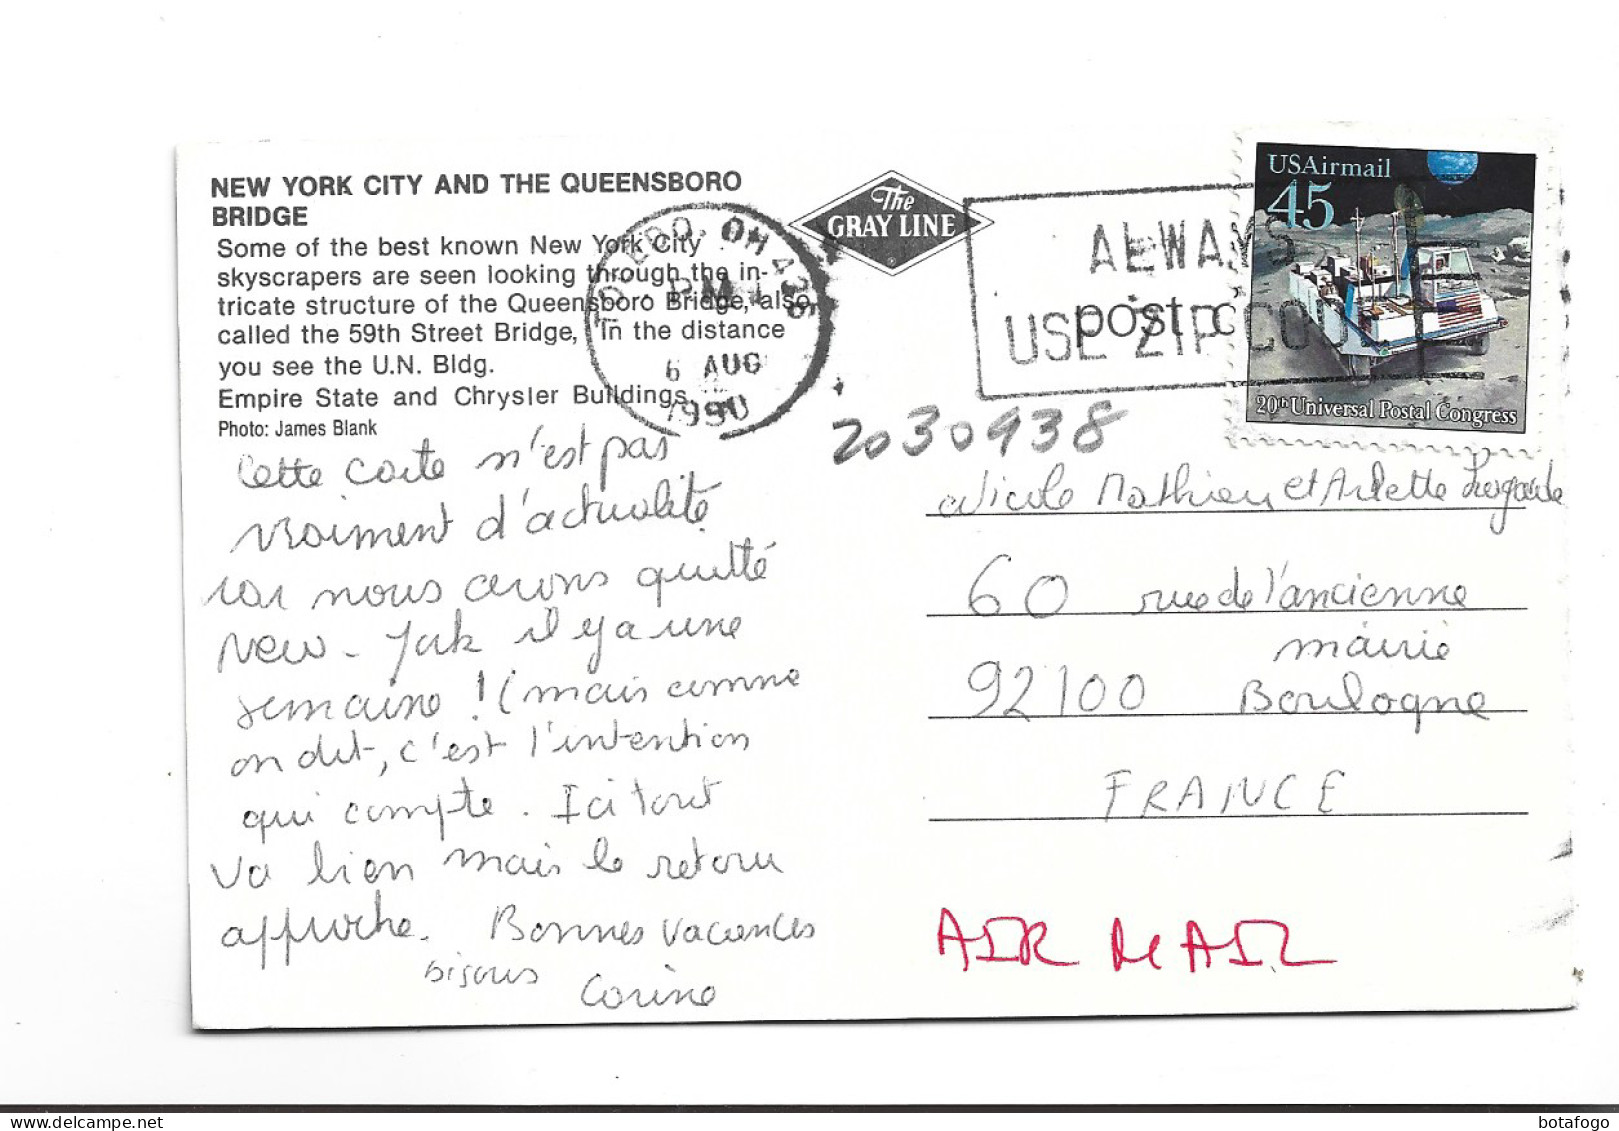 NEW YORK CITY AND THE QUEENSBORO
BRIDGE
Some of the best known New York City
skyscrapers are seen looking through the in-
tricate structure of the Queensboro Bridge, also
called the 59th Street Bridge, In the distance
you see the U.N. Bldg.
Empire State and Chrysler Buildings.
Photo: James Blank
TOLEDO, OH 436
PM
6 AUG
1990
The
GRAY LINE
ALWAYS
USE ZIP CODE
post c
USAirmail
45
20th Universal Postal Congress
2030938
Cette carte n'est pas
vraiment d'actualité
car nous avons quitté
New-York il y a une
semaine ! (mais comme
on dit, c'est l'intention
qui compte. Ici tout
va bien mais le retour
approche. Bonnes vacances
bisous Corine
Nicole Mathieu et Arlette
60 rue de l'ancienne
mairie
92100 Boulogne
FRANCE
AIR MAIL
botafogo
www.delcampe.net